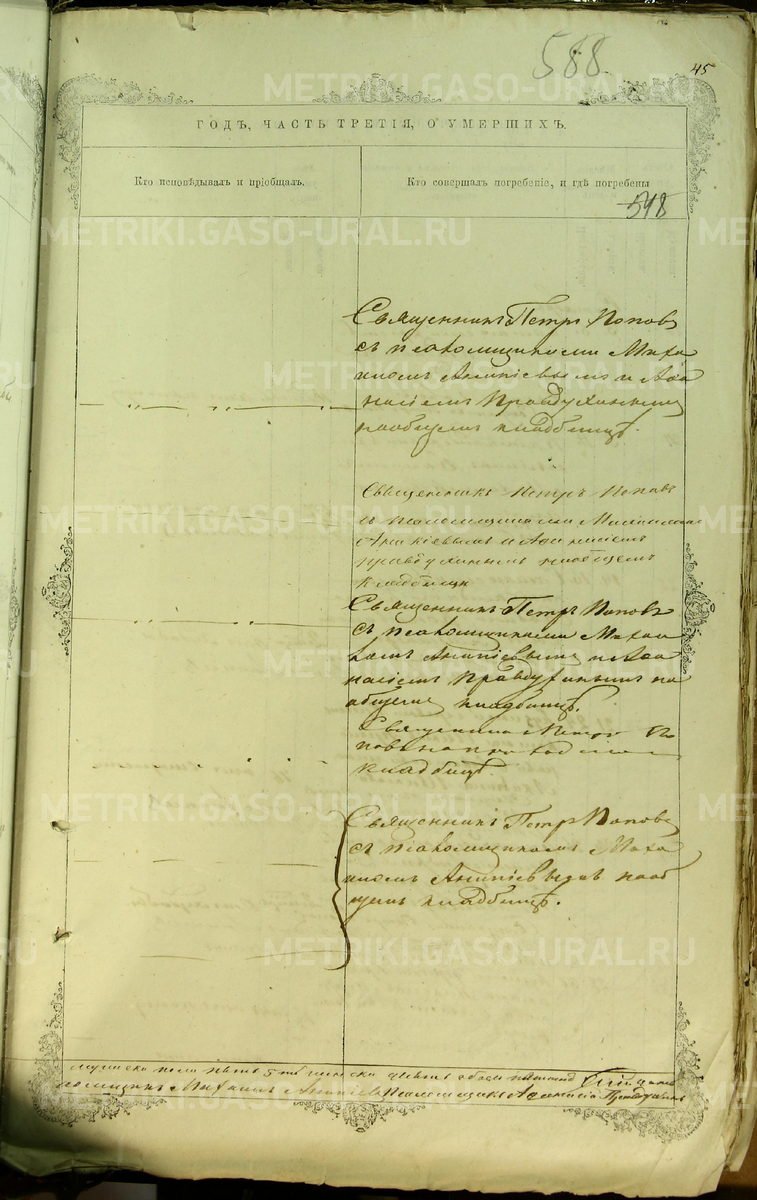 588
45
ГОДЪ, ЧАСТЬ ТРЕТІЯ, О УМЕРШИХЪ.
Кто исповѣдывалъ и пріобщалъ.
Кто совершалъ погребеніе, и гдѣ погребены
548
METRIKI.GASO-URAL.RU
Священникъ Петръ Поповъ
съ псаломщиками Миха
иломъ Аникіевымъ и Афа
насіемъ Правдухинымъ
на общемъ кладбищѣ.
Священникъ Петръ Поповъ
съ псаломщиками Михаиломъ
Аникіевымъ и Афанасіемъ
Правдухинымъ на общемъ
кладбищѣ
Священникъ Петръ Поповъ
съ псаломщиками Миха
иломъ Аникіевымъ и Афа
насіемъ Правдухинымъ на
общемъ кладбищѣ.
Священникъ Петръ По
повъ на приходскомъ
кладбищѣ.
Священникъ Петръ Поповъ
съ псаломщикомъ Миха
иломъ Аникіевымъ на об
щемъ кладбищѣ.
мужеска пола пять 5 женска девять обоего
псаломщикъ Михаилъ Аникіевъ Псаломщикъ Афанасій Правдухинъ